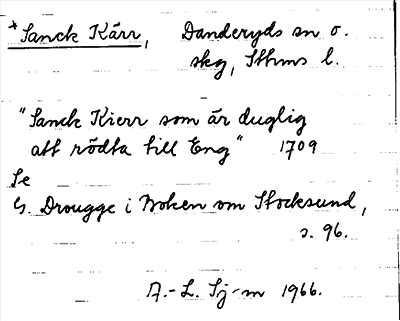 *Sanck Kärr, Danderyds sn o.
skg, Sthms l.
"Sanck Kierr som är duglig
att rödta till Eng" 1709
Se
G. Drougge i Boken om Stocksund,
s. 96.
A.-L. Sj-m 1966.